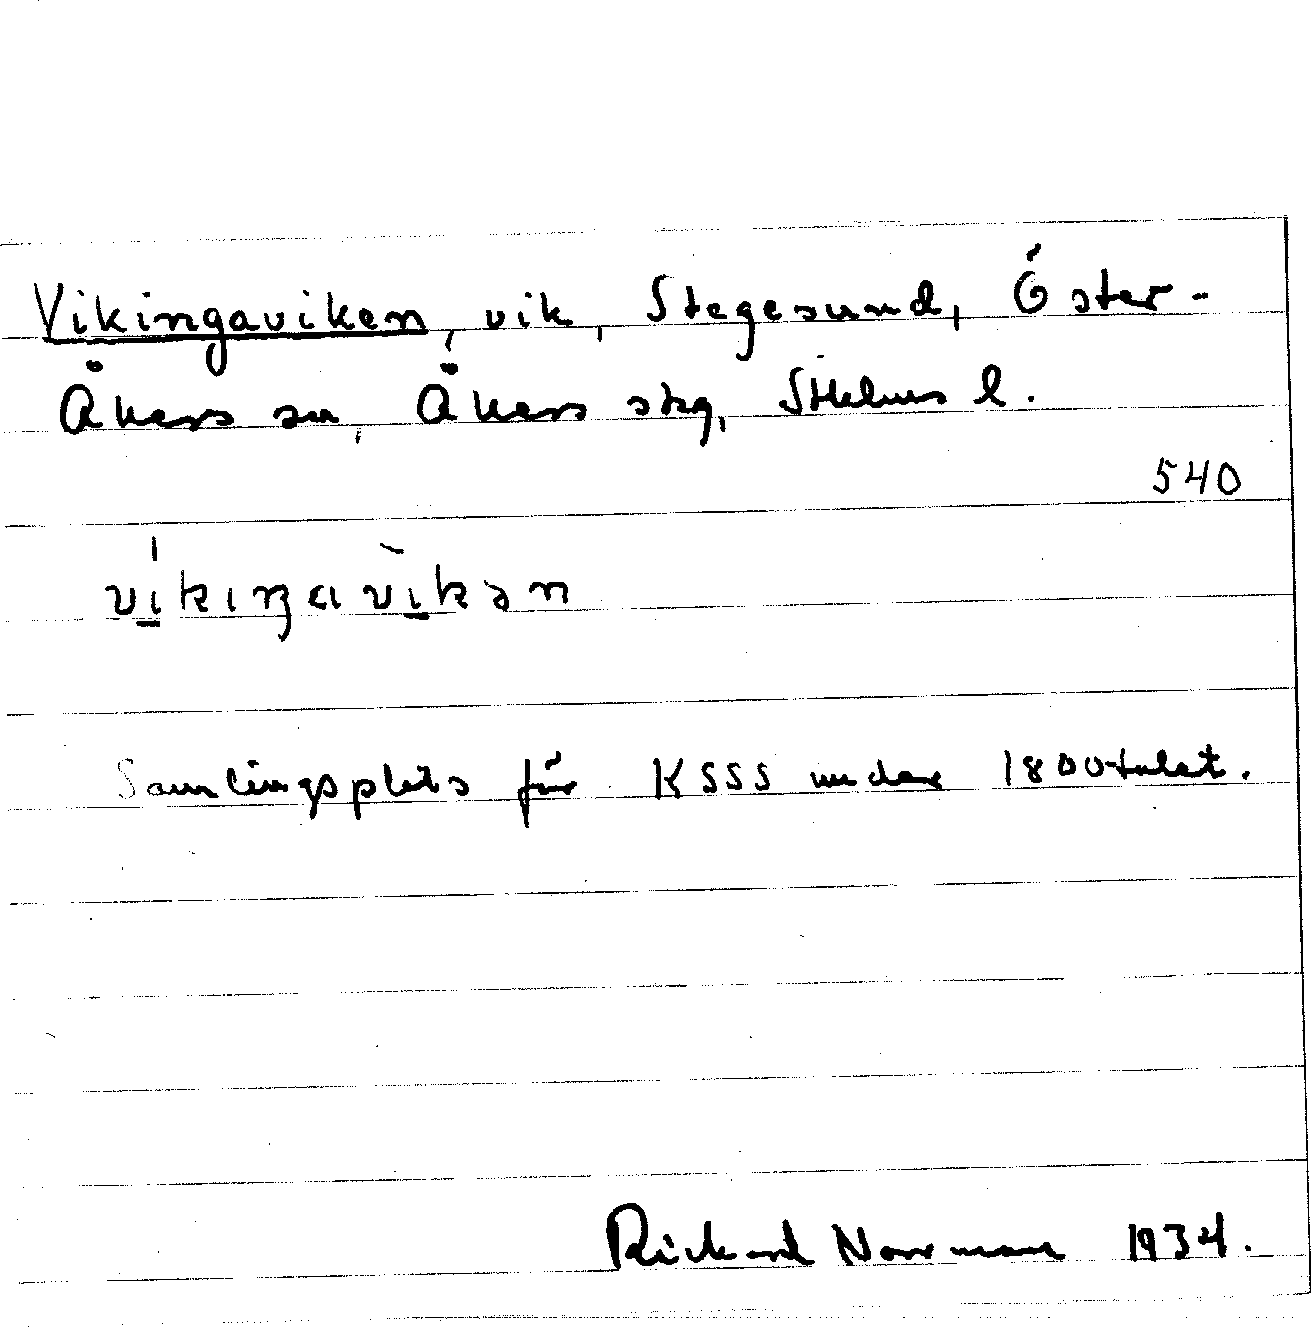 Vikingaviken, vik, Stegesund, Öster-
Åkers sn, Åkers skg, Sthlms l.
540
víkıŋavìkən
Samlingsplats för KSSS under 1800-talet.
Rickard Norrman 1934.